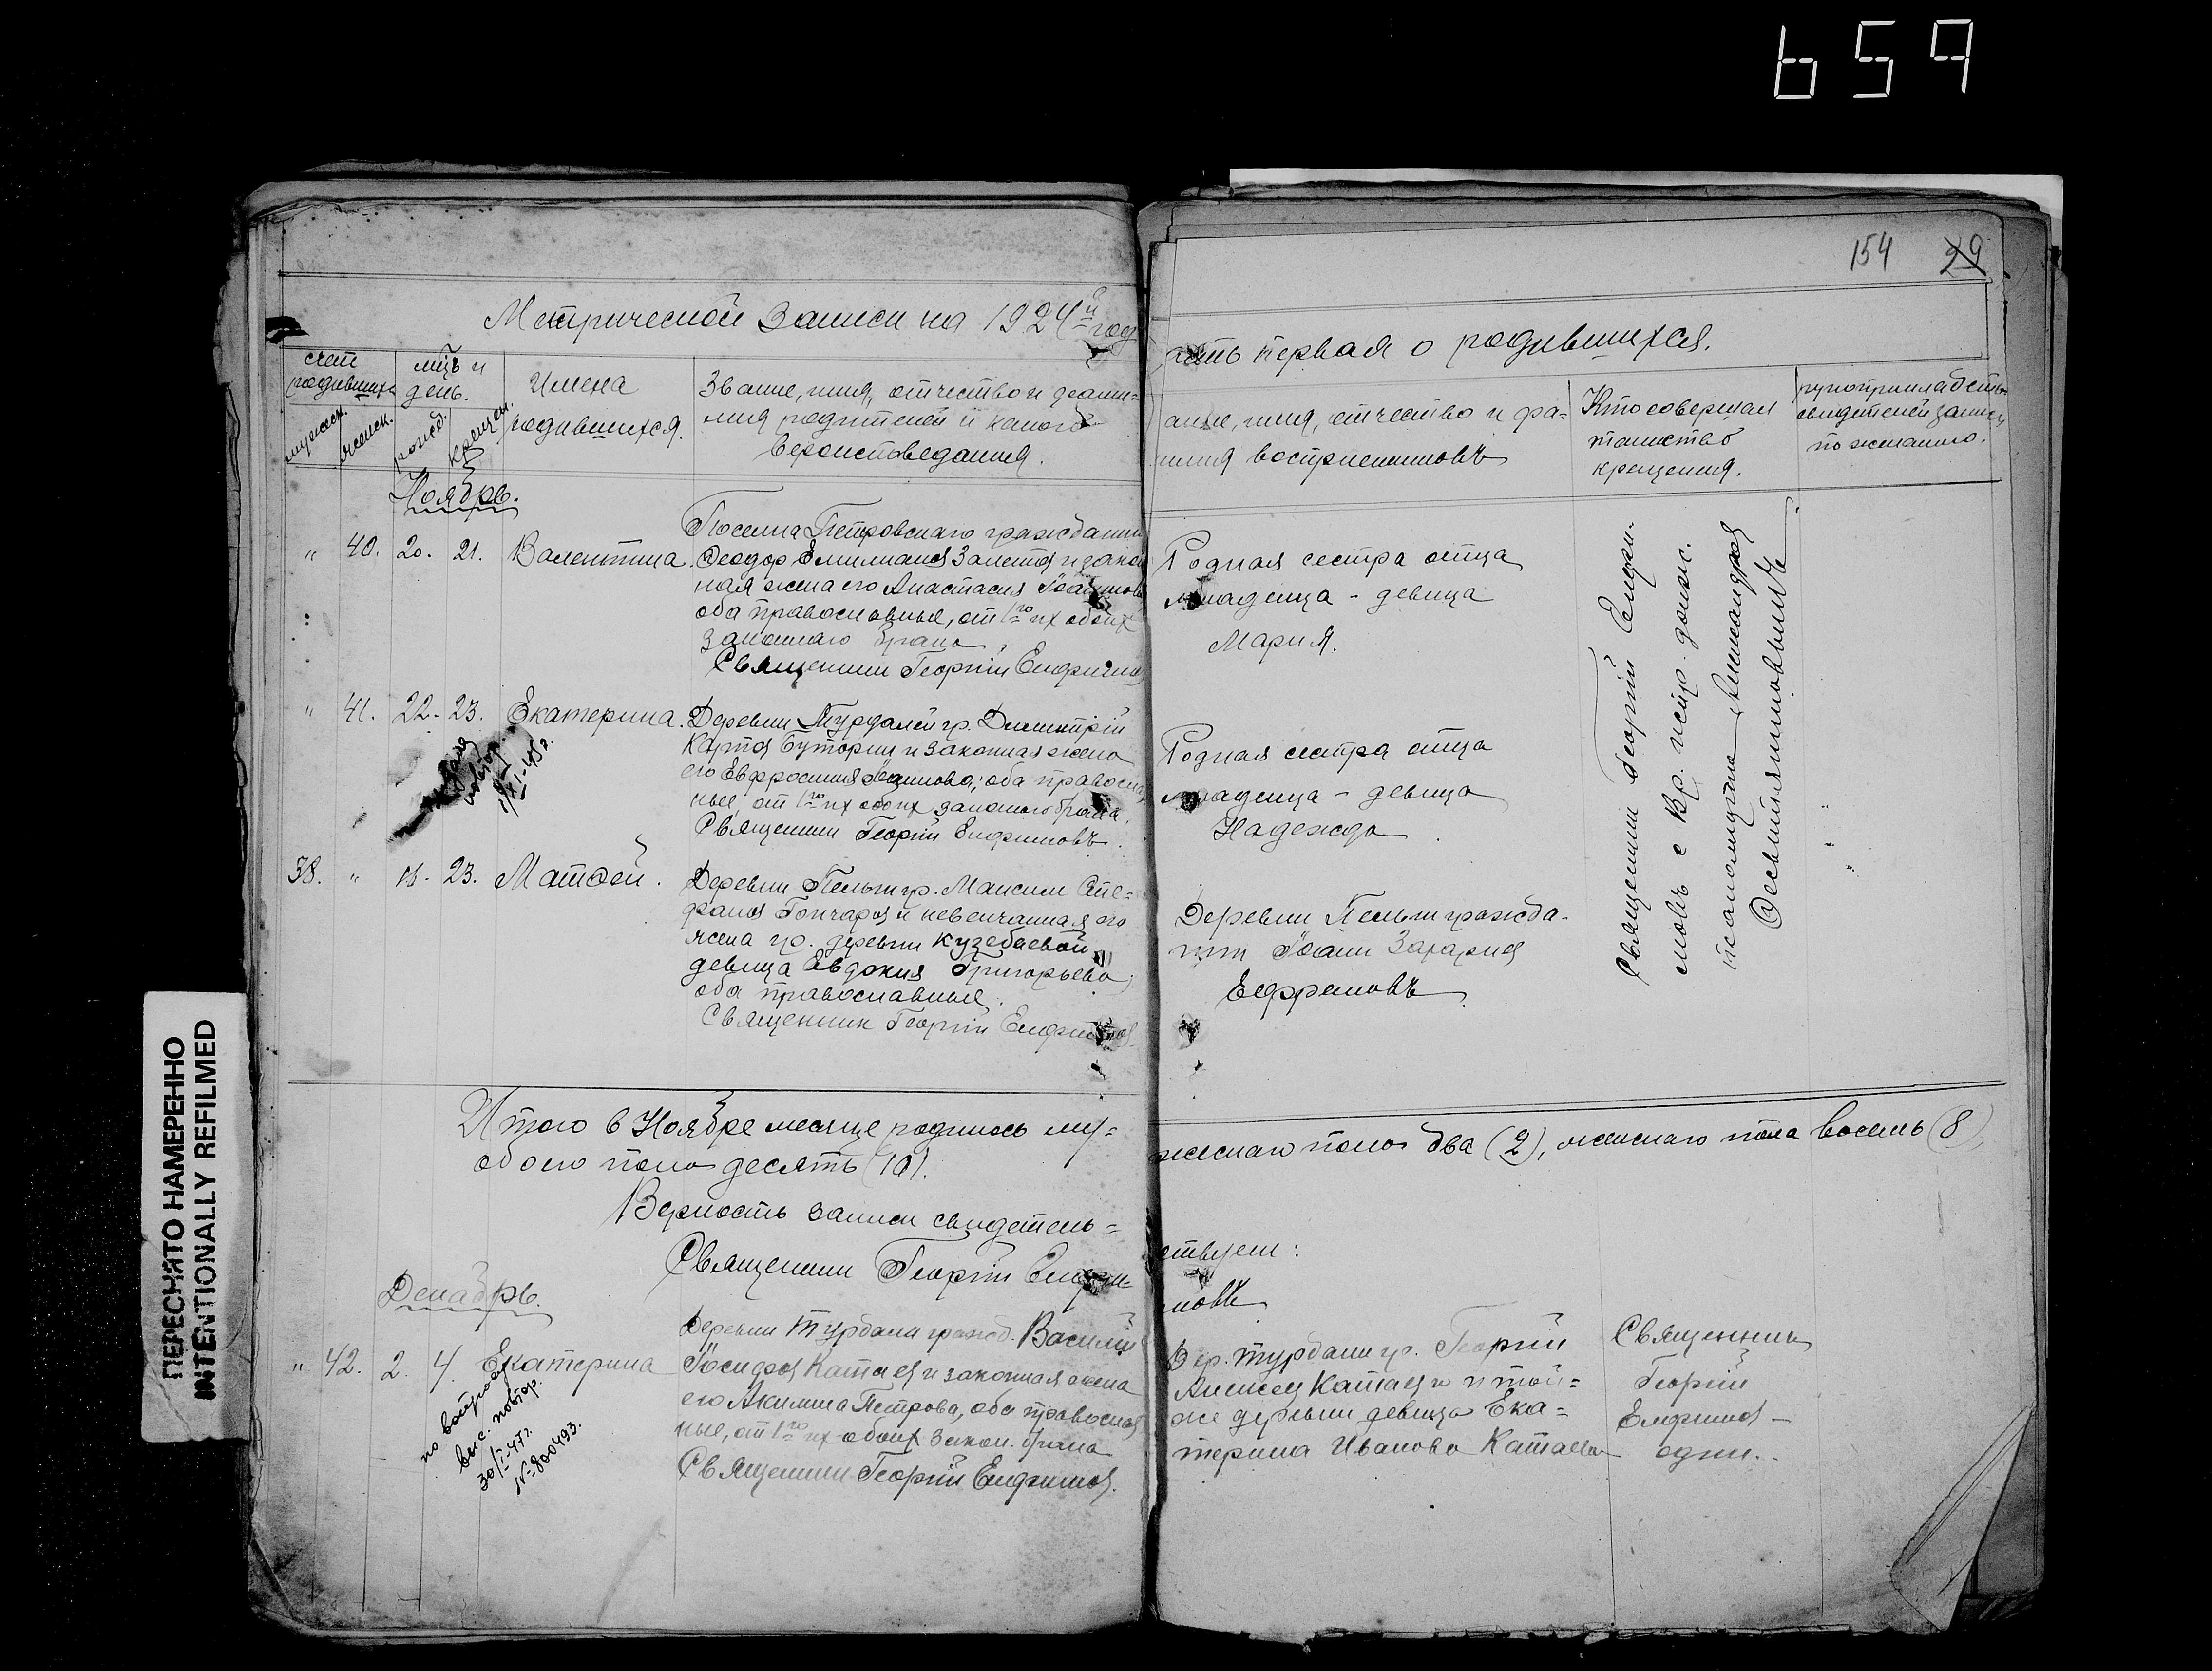 659
154 29
Метрической Записи на 1924й год
часть первая о родившихся.
счет родивших.
мужеск.
женск.
мцъ и день.
рожд.
крещен.
Имена родившихся.
Звание, имя, отчество и фами=
лия родителей и какого
вероисповедания.
ание, имя, отчество и фа=
милия восприемниковъ
Кто совершал
таинство
крещения.
свидетелей записи
по желанию.
Ноябрь.
" 40. 20. 21. Валентина.
Поселка Петровскаго гражданин
Феодор Емилианов и закон
ная жена его Анастасия
оба православные, от 1го их обоих
законнаго брака
Священник Георгий Елифимов
Родная сестра отца
младенца - девица
Мария.
" 41. 22. 23. Екатерина.
Деревни гр. Димитрий
Карпов Буторин и законная жена
его Евфросиния; оба православ
ные, от 1го их обоих законного брака.
Священник Георгий Елифимовъ.
Родная сестра отца
младенца - девица
Надежда
повтор.
XI-45г.
38. " 18. 23. Матфей.
Деревни гр. Максим Сте=
фанов Гончаров и невенчанная его
жена гр. деревни Кузебаевой
девица Евдокия Григорьева;
оба православные.
Священник Георгий Елифимов.
Деревни гражда-
нин Иоанн Захариев
Ефремовъ.
Священник Георгий Елифи-
мовъ с вр. испр. долж.
псаломщика Александров
Итого в Ноябре месяце родилось му=
жескаго пола два (2), женскаго пола восемь (8),
обоего пола десять (10).
Верность записи свидетель=
ствует:
Священник Георгий Елифи=
мовъ
Декабрь.
" 42. 2. 4. Екатерина
Деревни Турдали гражд. Василий
Иосифов Катаев и законная жена
его Акилина Петрова, оба православ
ные, от 1го их обоих закон. брака
Священник Георгий Елифимов.
Дер. Турдали гр. Георгий
Алексеев Катаев и той=
же деревни девица Ека=
терина Иванова Катаева
Священник
Георгий
Елифимов -
один.
выс. повтор.
30/I-47г.
№ 800493.
ПЕРЕСНЯТО НАМЕРЕННО
INTENTIONALLY REFILMED